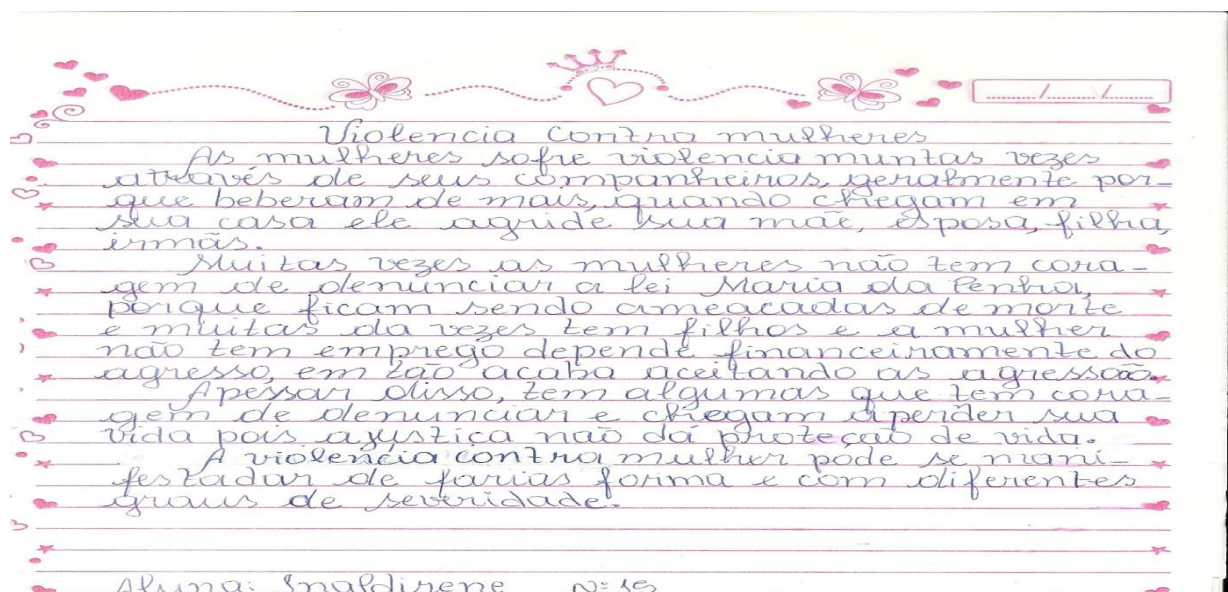 Violencia contra mulheres
As mulheres sofre violencia muntas vezes
através de seus companheiros, geralmente por-
que beberam de mais, quando chegam em
sua casa ele agride sua mãe, esposa, filha,
irmãs.
Muitas vezes as mulheres não tem cora-
gem de denunciar a lei Maria da Penha,
porque ficam sendo ameacadas de morte
e muitas da vezes tem filhos e a mulher
não tem emprego depende financeiramente do
agresso, em zão acaba aceitando as agressão.
Apessar disso, tem algumas que tem cora-
gem de denunciar e chegam aperder sua
vida pois ajustiça não dá proteção de vida.
A violencia contra mulher pode se mani-
festadar de farias forma e com diferentes
graus de severidade.
Aluna: Inaldirene Nº 15